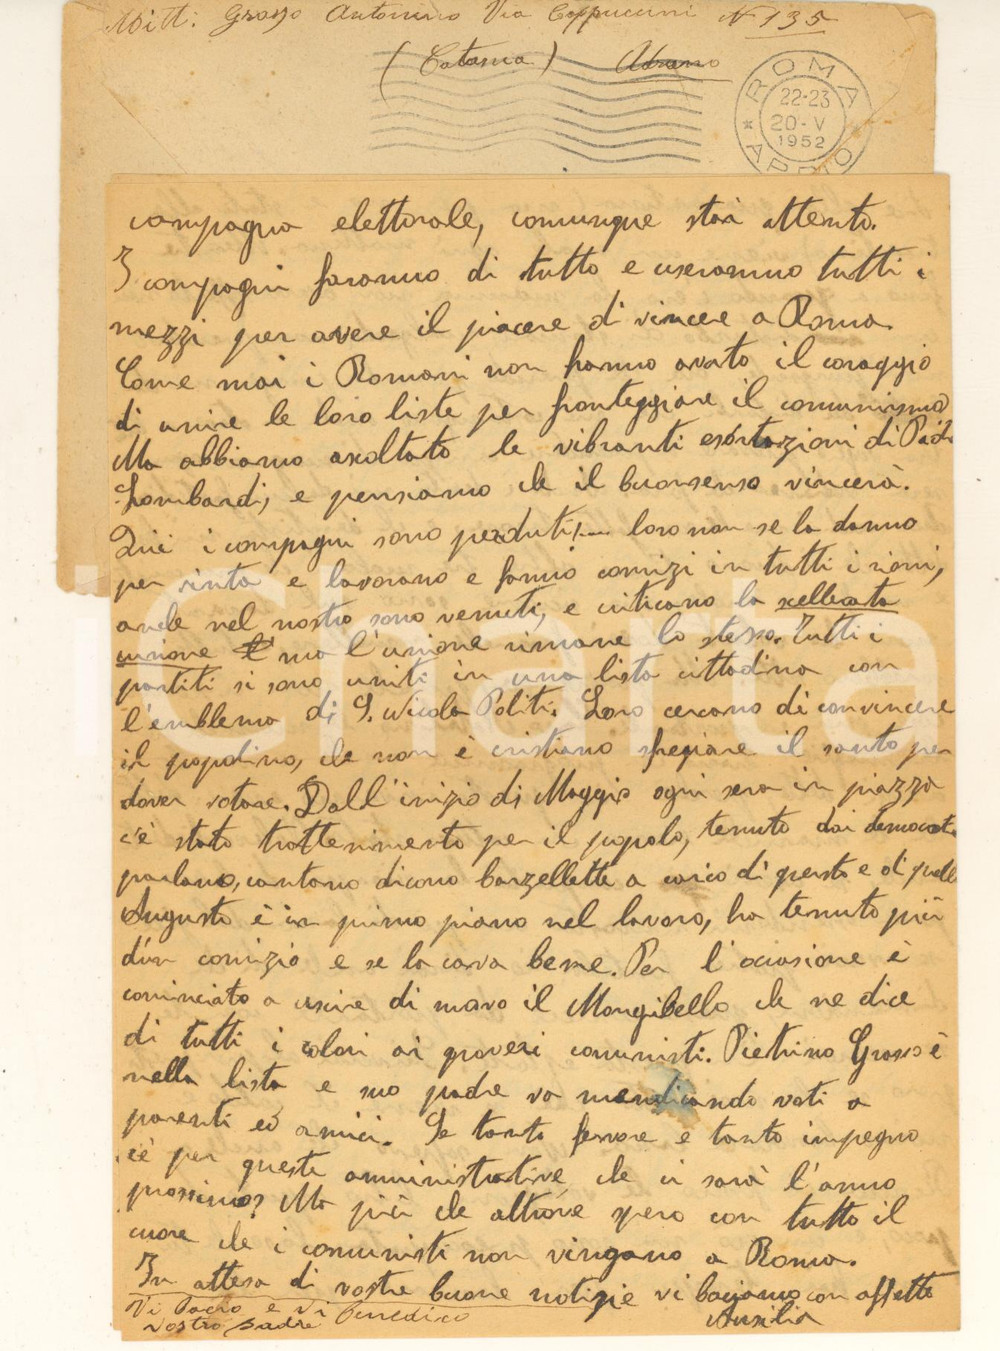 Mitt: Grasso Antonino Via Cappuccini N 135
(Catania) Adrano
ROMA APPIO
22-23
20-V
1952
campagna elettorale, comunque stai attento.
I compagni faranno di tutto e useranno tutti i
mezzi per avere il piacere di vincere a Roma.
Come mai i Romani non hanno avuto il coraggio
di unire le loro liste per fronteggiare il comunismo
Ma abbiamo ascoltato le vibranti esortazioni di Padre
Lombardi, e pensiamo che il buonsenso vincerà.
Qui i compagni sono perduti!... loro non se la danno
per vinta e lavorano e fanno comizi in tutti i rioni,
anche nel nostro sono venuti, e criticano la scellerata
unione ma l'unione rimane lo stesso. Tutti i
partiti si sono uniti in una lista cittadina con
l'emblema di S. Nicola Politi. Loro cercano di convincere
il popolino, che non è cristiano sfregiare il santo per
dover votare. Dall'inizio di Maggio ogni sera in piazza
c'è stato trattenimento per il popolo, tenuto dai democrat
parlano, cantano dicono barzellette a carico di questo e di quello
Augusto è in primo piano nel lavoro, ha tenuto più
d'un comizio e se la cava bene. Per l'occasione è
cominciato a uscire di nuovo il Mongibello che ne dice
di tutti i colori ai poveri comunisti. Pietrino Grasso è
nella lista e suo padre va mendicando voti a
parenti ed amici. Se tanto fervore e tanto impegno
c'è per queste amministrative, che ci sarà l'anno
prossimo? Ma più che altrove spero con tutto il
cuore che i comunisti non vincano a Roma.
In attesa di vostre buone notizie vi baciamo con affetto
Ausilia
Vi Bacio e vi Benedico
vostro padre
iCharta